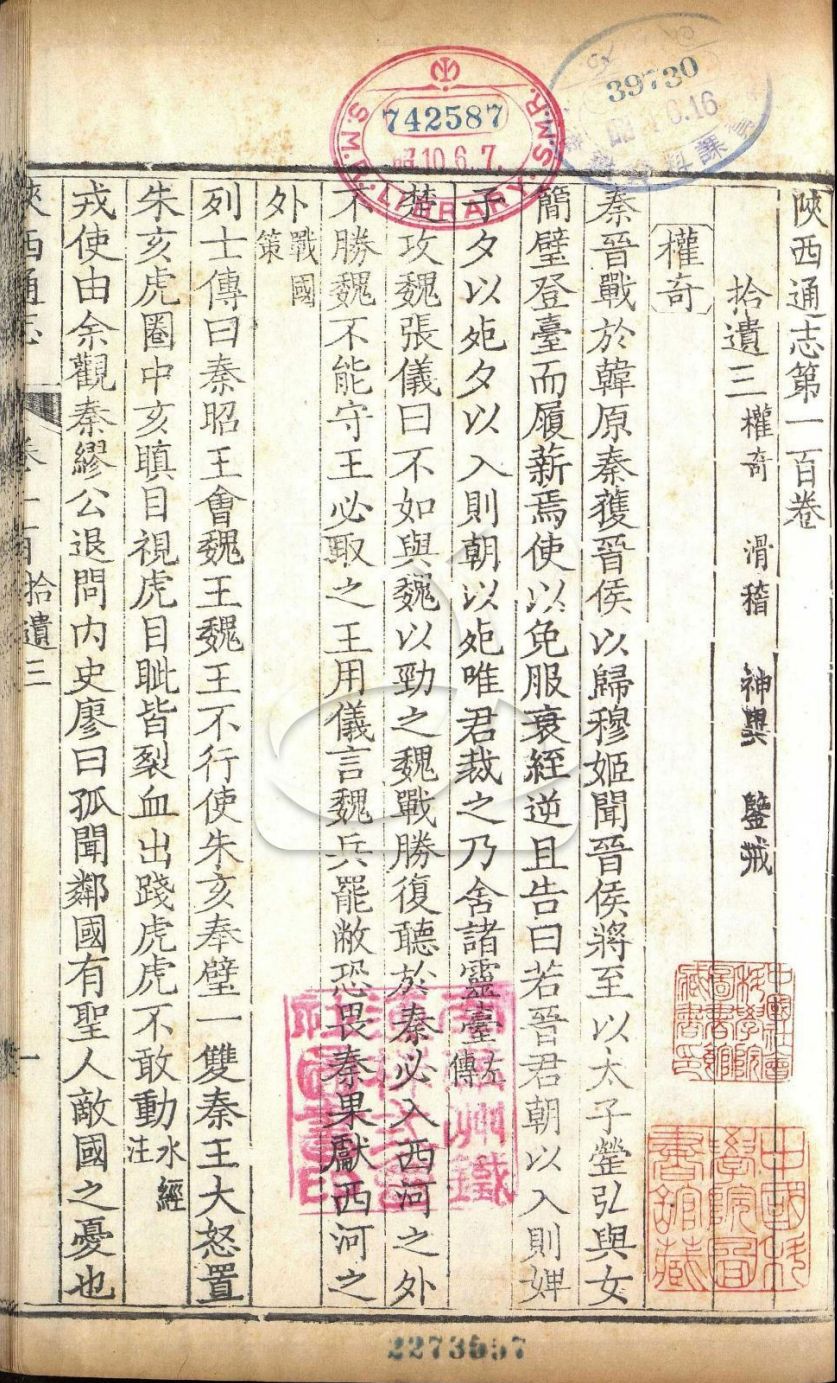 陝西通志第一百卷
拾遺三 權奇 滑稽 神異 鑒戒
權奇
秦晉戰於韓原秦獲晉侯以歸穆姬聞晉侯將至以太子罃弘與女
簡璧登臺而履薪焉使以免服衰絰逆且告曰若晉君朝以入則婢
子夕以死夕以入則朝以死唯君裁之乃舍諸靈臺左傳
楚攻魏張儀曰不如與魏以勁之魏戰勝復聽於秦必入西河之外
不勝魏不能守王必取之王用儀言魏兵罷敝恐畏秦果獻西河之
外戰國策
列士傳曰秦昭王會魏王魏王不行使朱亥奉璧一雙秦王大怒置
朱亥虎圈中亥瞋目視虎目眦皆裂血出踐虎虎不敢動水經注
戎使由余觀秦繆公退問內史廖曰孤聞鄰國有聖人敵國之憂也
陝西通志
卷一百 拾遺三
一
742587
10.6.7.
S.M.R. LIBRARY
39730
6.16
中國社會科學院圖書館藏書印
中國科學院圖書館藏
2273557